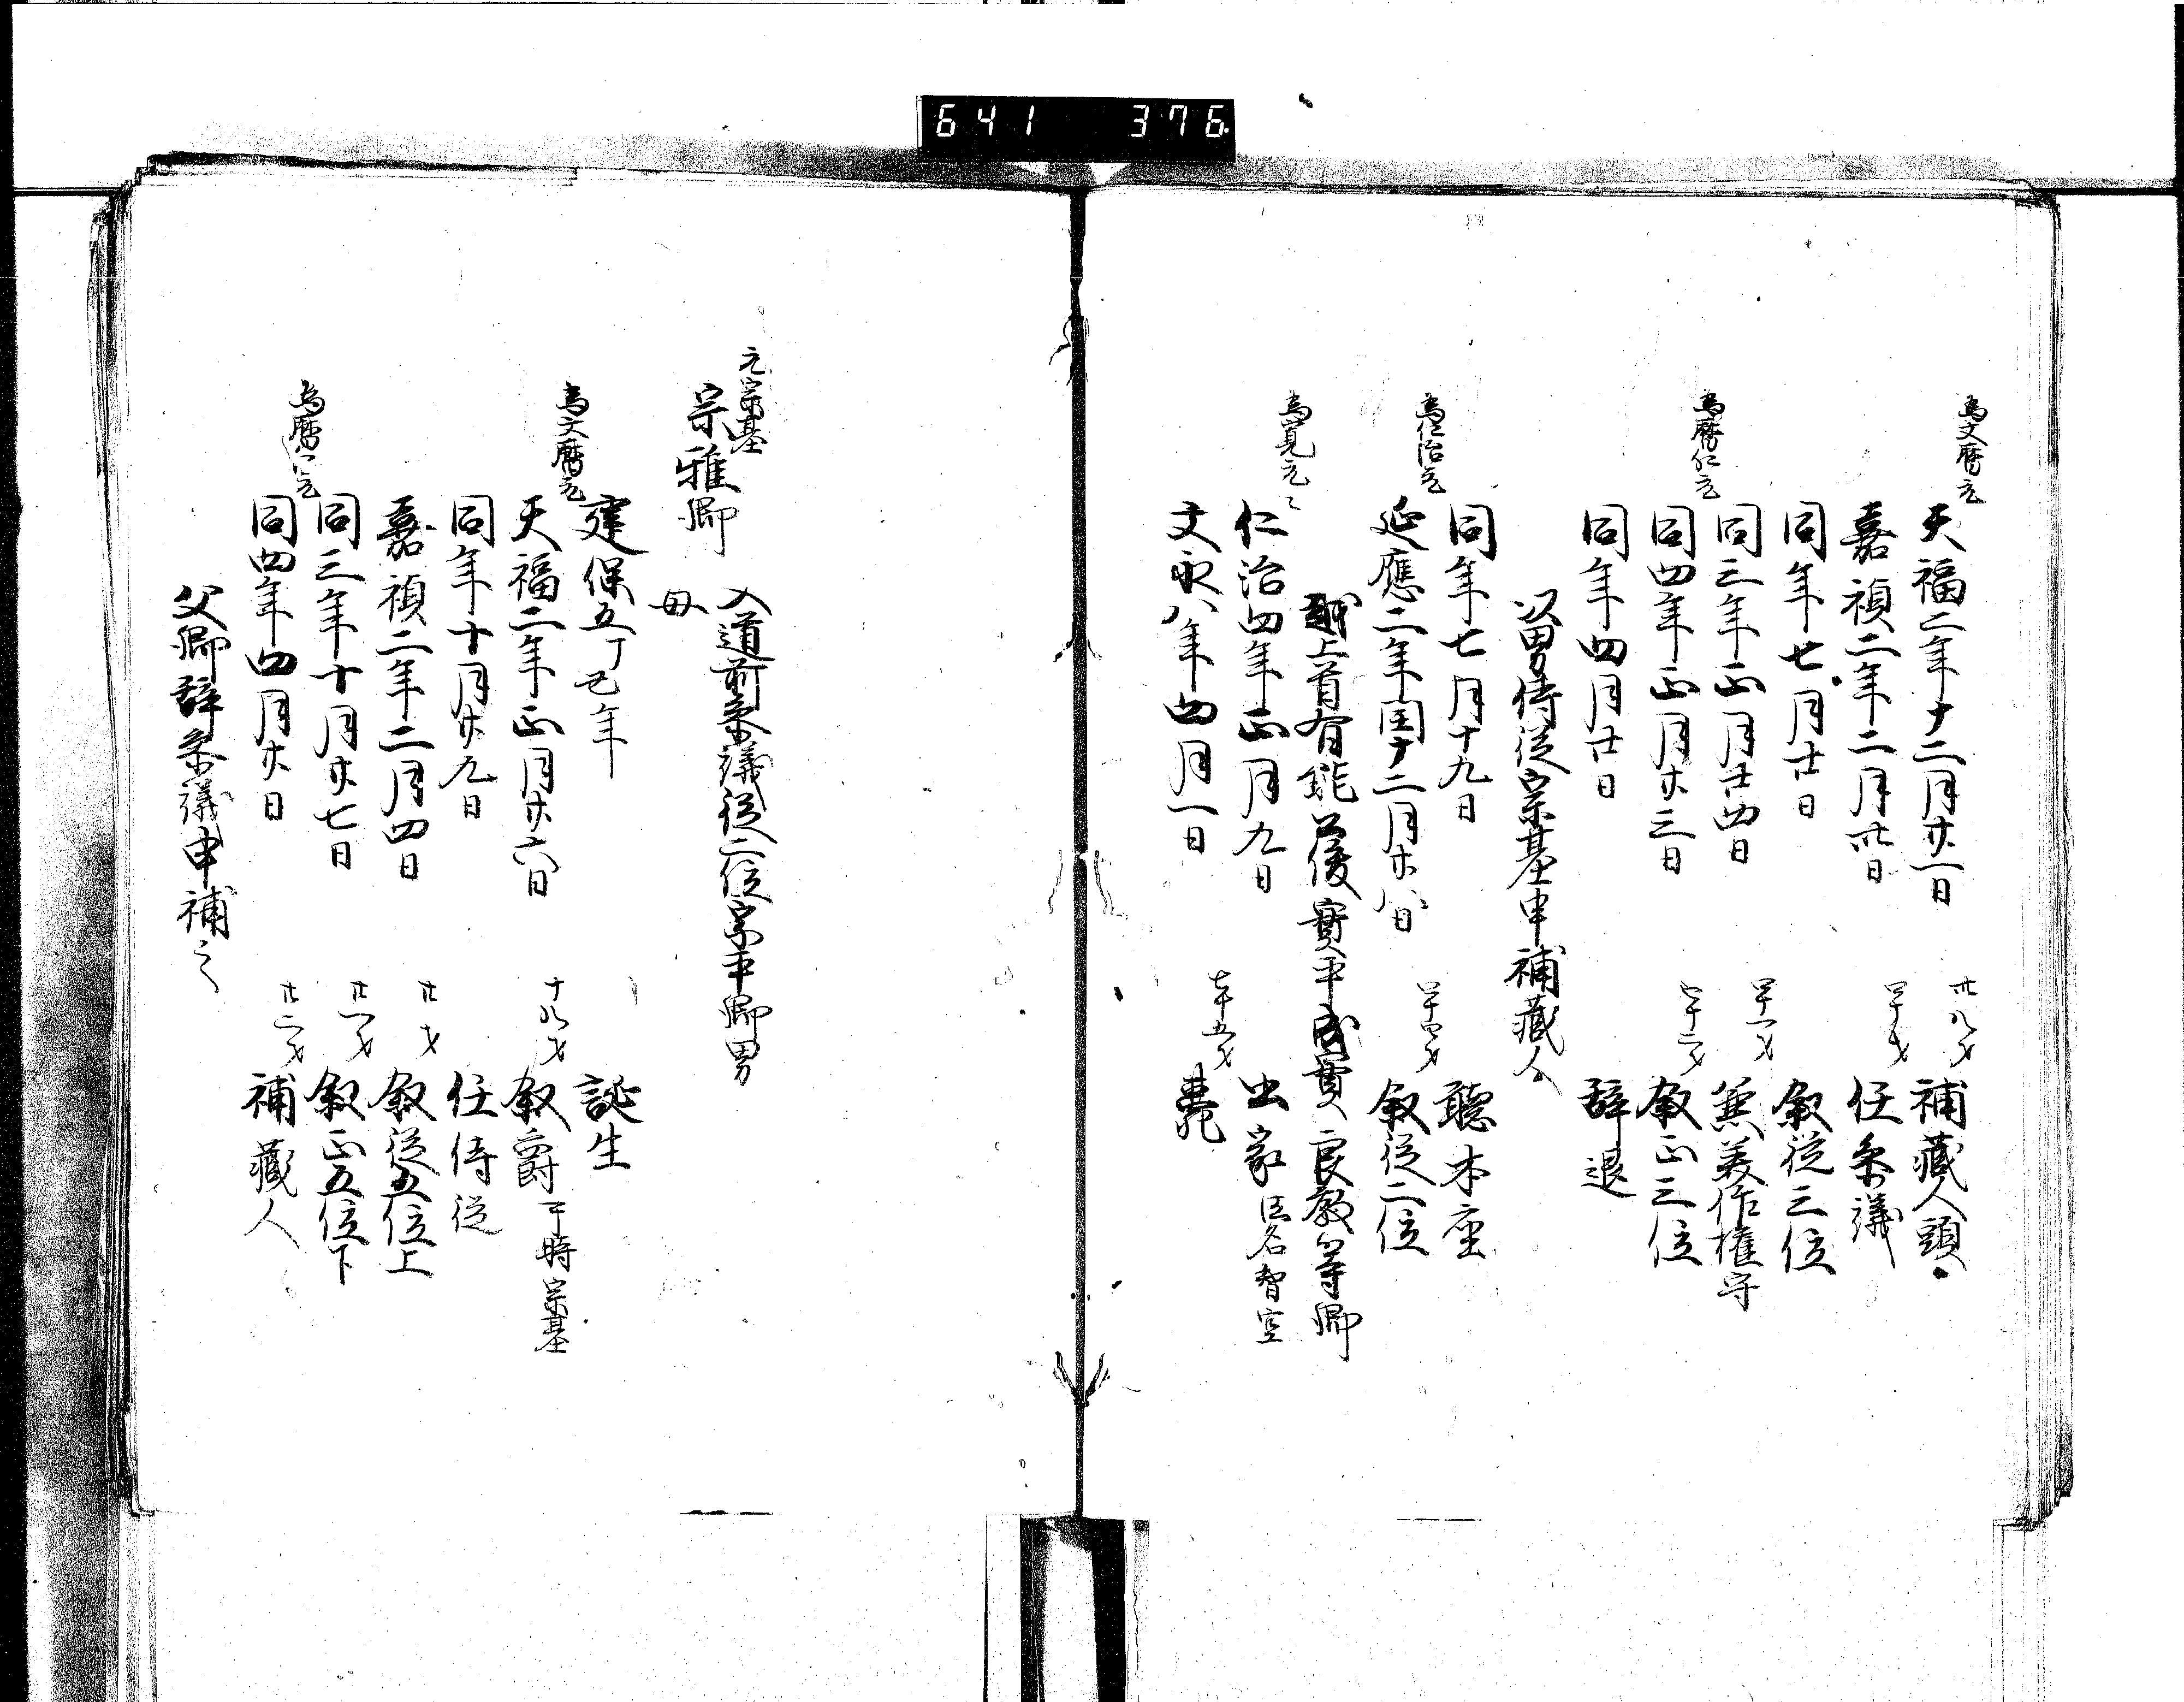 641 376
為文暦元
天福二年十二月廿一日 卅八才 補蔵人頭
嘉禎二年二月卅日 四十才 任参議
同年七月廿日 叙従三位
同三年正月廿四日 四十一才 兼美作権守
為暦仁元
同四年正月廿三日 四十二才 叙正三位
同年四月廿日 辞退
以男侍従宗基申補蔵人
同年七月十九日 聴本座
為仁治元
延應二年閏十二月廿八日 四十四才 叙従二位
越上首有能 親俊 實平 成實 良教等卿
為寛元々
仁治四年正月九日 出家 法名智空
文永八年四月一日 七十五才 薨
元宗基
宗雅卿 入道前参議従二位宗平卿男
母
建保五丁丑年 誕生
為文暦元
天福二年正月廿六日 十八才 叙爵 于時宗基
同年十月廿九日 任侍従
嘉禎二年二月四日 廿才 叙従五位上
同三年十月廿七日 廿一才 叙正五位下
為暦仁元
同四年四月廿日 廿二才 補蔵人
父卿辞参議申補之